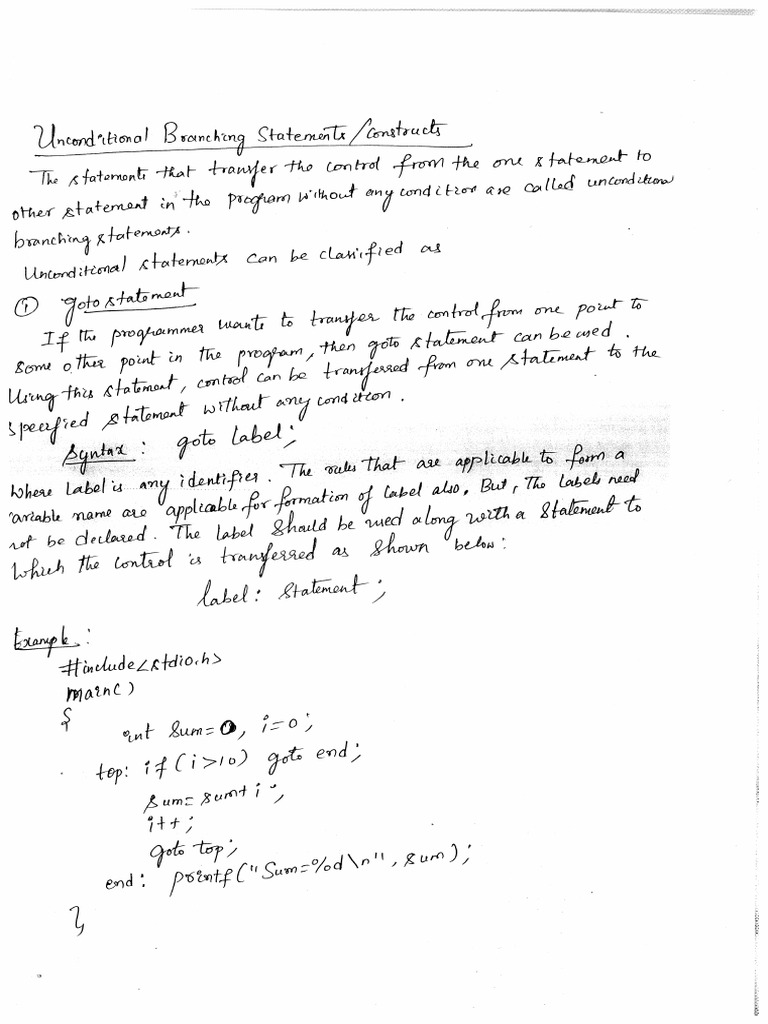 Unconditional Branching Statements/Constructs
The statements that transfer the control from the one statement to
other statement in the program without any condition are called unconditional
branching statements.
Unconditional statements can be classified as
① goto statement
If the programmer wants to transfer the control from one point to
some other point in the program, then goto statement can be used.
Using this statement, control can be transferred from one statement to the
specified statement without any condition.
Syntax: goto Label;
Where Label is any identifier. The rules that are applicable to form a
variable name are applicable for formation of Label also, But, The Labels need
not be declared. The label should be used along with a Statement to
Which the control is transferred as shown below:
label: Statement;
Example:
#include<stdio.h>
main()
{
int sum=0, i=0;
top: if(i>10) goto end;
sum=sum+i;
i++;
goto top;
end: printf("Sum=%d\n", sum);
}